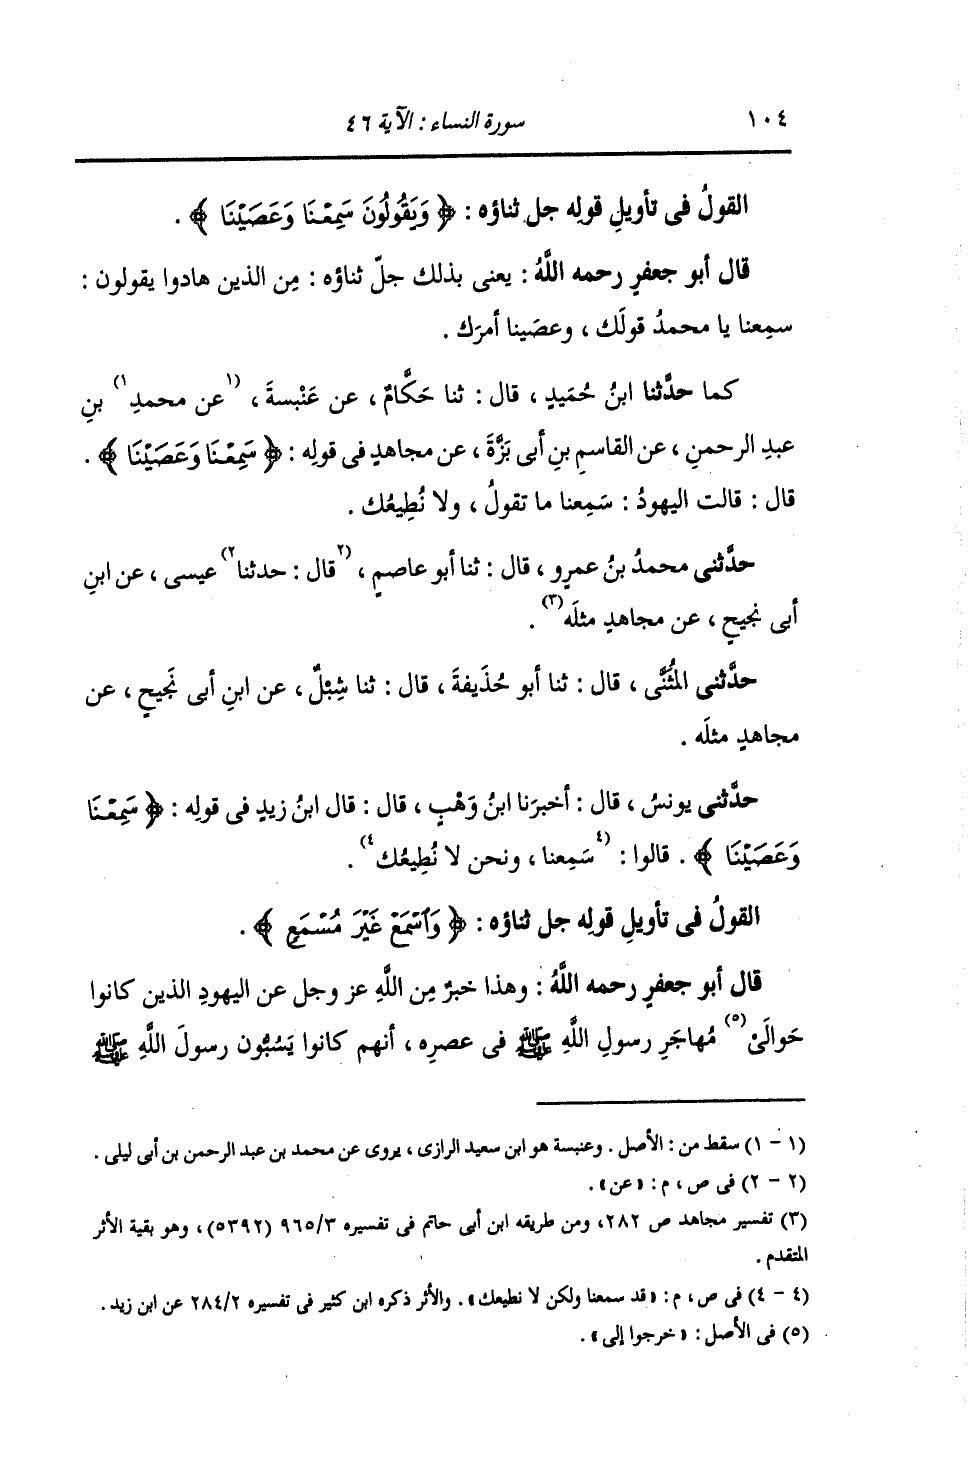 ١٠٤ سورة النساء : الآية ٤٦
القولُ فى تأويلِ قولِه جل ثناؤه : ﴿ وَيَقُولُونَ سَمِعْنَا وَعَصَيْنَا ﴾ .
قال أبو جعفرٍ رحمه اللَّهُ : يعنى بذلك جلّ ثناؤه : مِن الذين هادوا يقولون :
سمِعنا يا محمدُ قولَك ، وعصَينا أمرَك .
كما حدَّثنا ابنُ حُمَيدٍ ، قال : ثنا حَكَّامٌ ، عن عَنْبسةَ ، (١عن محمدِ١) بنِ
عبدِ الرحمنِ ، عن القاسمِ بنِ أبى بَزَّةَ ، عن مجاهدٍ فى قولِه : ﴿ سَمِعْنَا وَعَصَيْنَا ﴾ .
قال : قالت اليهودُ : سَمِعنا ما تقولُ ، ولا نُطِيعُك .
حدَّثنى محمدُ بنُ عمرٍو ، قال : ثنا أبو عاصمٍ ، (٢قال : حدثنا٢) عيسى ، عن ابنِ
أبى نجيحٍ ، عن مجاهدٍ مثلَه(٣) .
حدَّثنى المُثَنَّى ، قال : ثنا أبو حُذَيفةَ ، قال : ثنا شِبْلٌ ، عن ابنِ أبى نَجيحٍ ، عن
مجاهدٍ مثلَه .
حدَّثنى يونسُ ، قال : أخبرَنا ابنُ وَهْبٍ ، قال : قال ابنُ زيدٍ فى قولِه : ﴿ سَمِعْنَا
وَعَصَيْنَا ﴾ . قالوا : (٤سَمِعنا ، ونحن لا نُطِيعُك٤) .
القولُ فى تأويلِ قولِه جل ثناؤه : ﴿ وَٱسْمَعْ غَيْرَ مُسْمَعٍ ﴾ .
قال أبو جعفرٍ رحمه اللَّهُ : وهذا خبرٌ مِن اللَّهِ عز وجل عن اليهودِ الذين كانوا
حَوالَىْ(٥) مُهاجَرِ رسولِ اللَّهِ ﷺ فى عصرِه ، أنهم كانوا يَسُبُّون رسولَ اللَّهِ ﷺ
(١ - ١) سقط من : الأصل . وعنبسة هو ابن سعيد الرازى ، يروى عن محمد بن عبد الرحمن بن أبى ليلى .
(٢ - ٢) فى ص ، م : «عن» .
(٣) تفسير مجاهد ص ٢٨٢، ومن طريقه ابن أبى حاتم فى تفسيره ٩٦٥/٣ (٥٣٩٢) ، وهو بقية الأثر
المتقدم .
(٤ - ٤) فى ص ، م : «قد سمعنا ولكن لا نطيعك» . والأثر ذكره ابن كثير فى تفسيره ٢٨٤/٢ عن ابن زيد .
(٥) فى الأصل : «خرجوا إلى» .